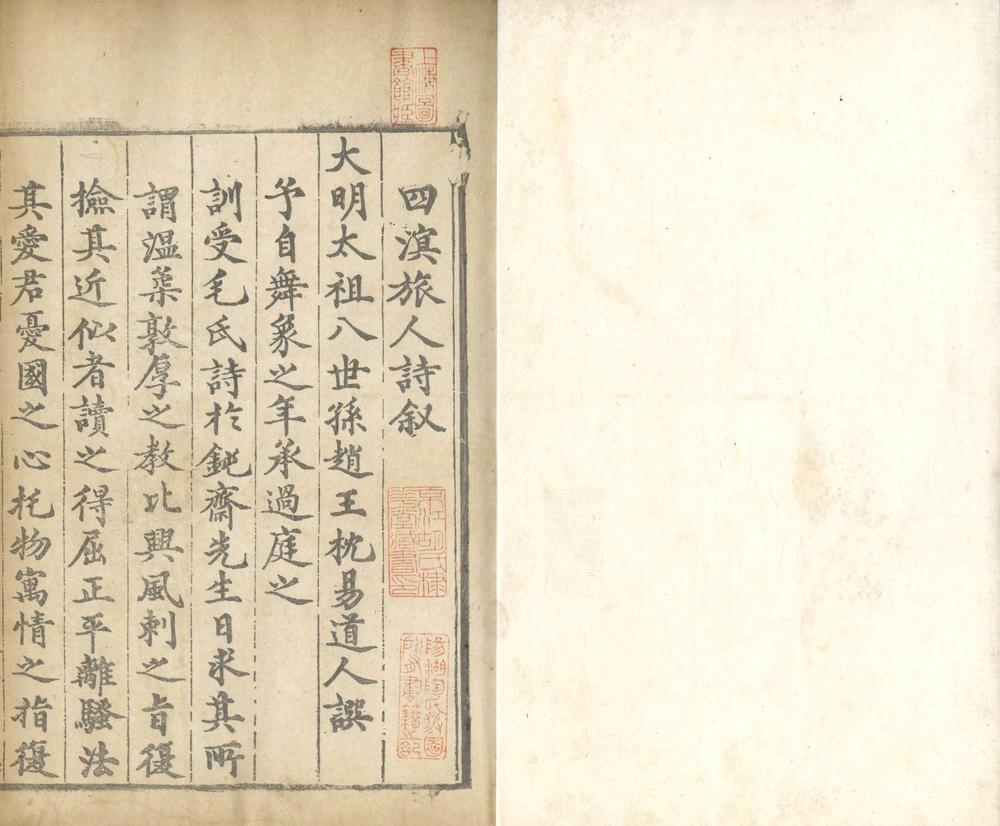 四溟旅人詩叙
大明太祖八世孫趙王枕易道人譔
予自舞象之年承過庭之
訓受毛氏詩於鈍齋先生日求其所
謂溫柔敦厚之教比興風刺之旨復
撿其近似者讀之得屈正平離騷法
其愛君憂國之心托物寓情之指復
上海圖書館藏
京江胡氏棣華堂藏書印
陽湖陶氏涉園所有書籍之記